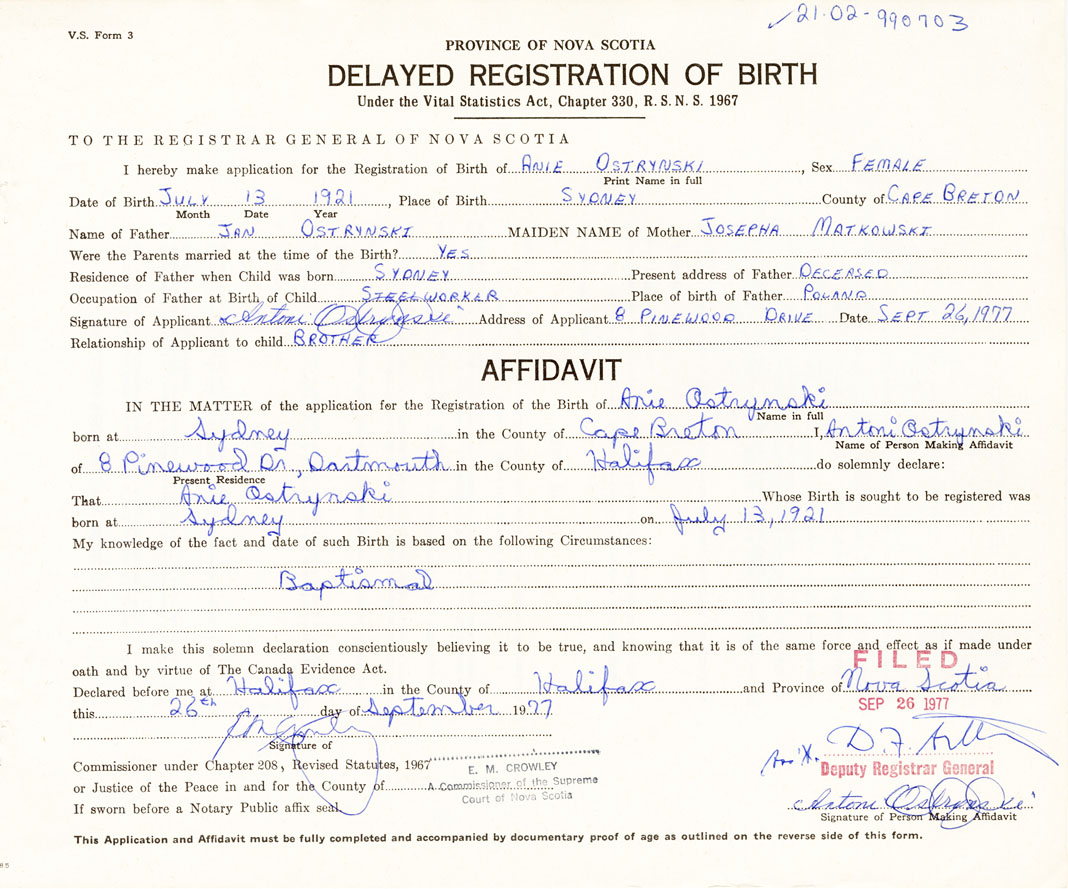 21-02-990703
V.S. Form 3
PROVINCE OF NOVA SCOTIA
DELAYED REGISTRATION OF BIRTH
Under the Vital Statistics Act, Chapter 330, R.S.N.S. 1967
TO THE REGISTRAR GENERAL OF NOVA SCOTIA
I hereby make application for the Registration of Birth of ANIE OSTRYNSKI, Sex FEMALE
Print Name in full
Date of Birth JULY 13 1921, Place of Birth SYDNEY County of CAPE BRETON
Month Date Year
Name of Father JAN OSTRYNSKI MAIDEN NAME of Mother JOSEPHA MATKOWSKI
Were the Parents married at the time of the Birth? YES
Residence of Father when Child was born SYDNEY Present address of Father DECEASED
Occupation of Father at Birth of Child STEELWORKER Place of birth of Father POLAND
Signature of Applicant Antoni Ostrynski Address of Applicant 8 PINEWOOD DRIVE Date SEPT 26, 1977
Relationship of Applicant to child BROTHER
AFFIDAVIT
IN THE MATTER of the application for the Registration of the Birth of Anie Ostrynski
Name in full
born at Sydney in the County of Cape Breton I, Antoni Ostrynski
Name of Person Making Affidavit
of 8 Pinewood Dr., Dartmouth in the County of Halifax do solemnly declare:
Present Residence
That Anie Ostrynski Whose Birth is sought to be registered was
born at Sydney on July 13, 1921
My knowledge of the fact and date of such Birth is based on the following Circumstances:
Baptismal
I make this solemn declaration conscientiously believing it to be true, and knowing that it is of the same force and effect as if made under
oath and by virtue of The Canada Evidence Act.
FILED
Declared before me at Halifax in the County of Halifax and Province of Nova Scotia
this 26th day of September 1977
SEP 26 1977
Signature of
Commissioner under Chapter 208, Revised Statutes, 1967
or Justice of the Peace in and for the County of
If sworn before a Notary Public affix seal.
E. M. CROWLEY
A Commissioner of the Supreme
Court of Nova Scotia
Deputy Registrar General
Antoni Ostrynski
Signature of Person Making Affidavit
This Application and Affidavit must be fully completed and accompanied by documentary proof of age as outlined on the reverse side of this form.
85